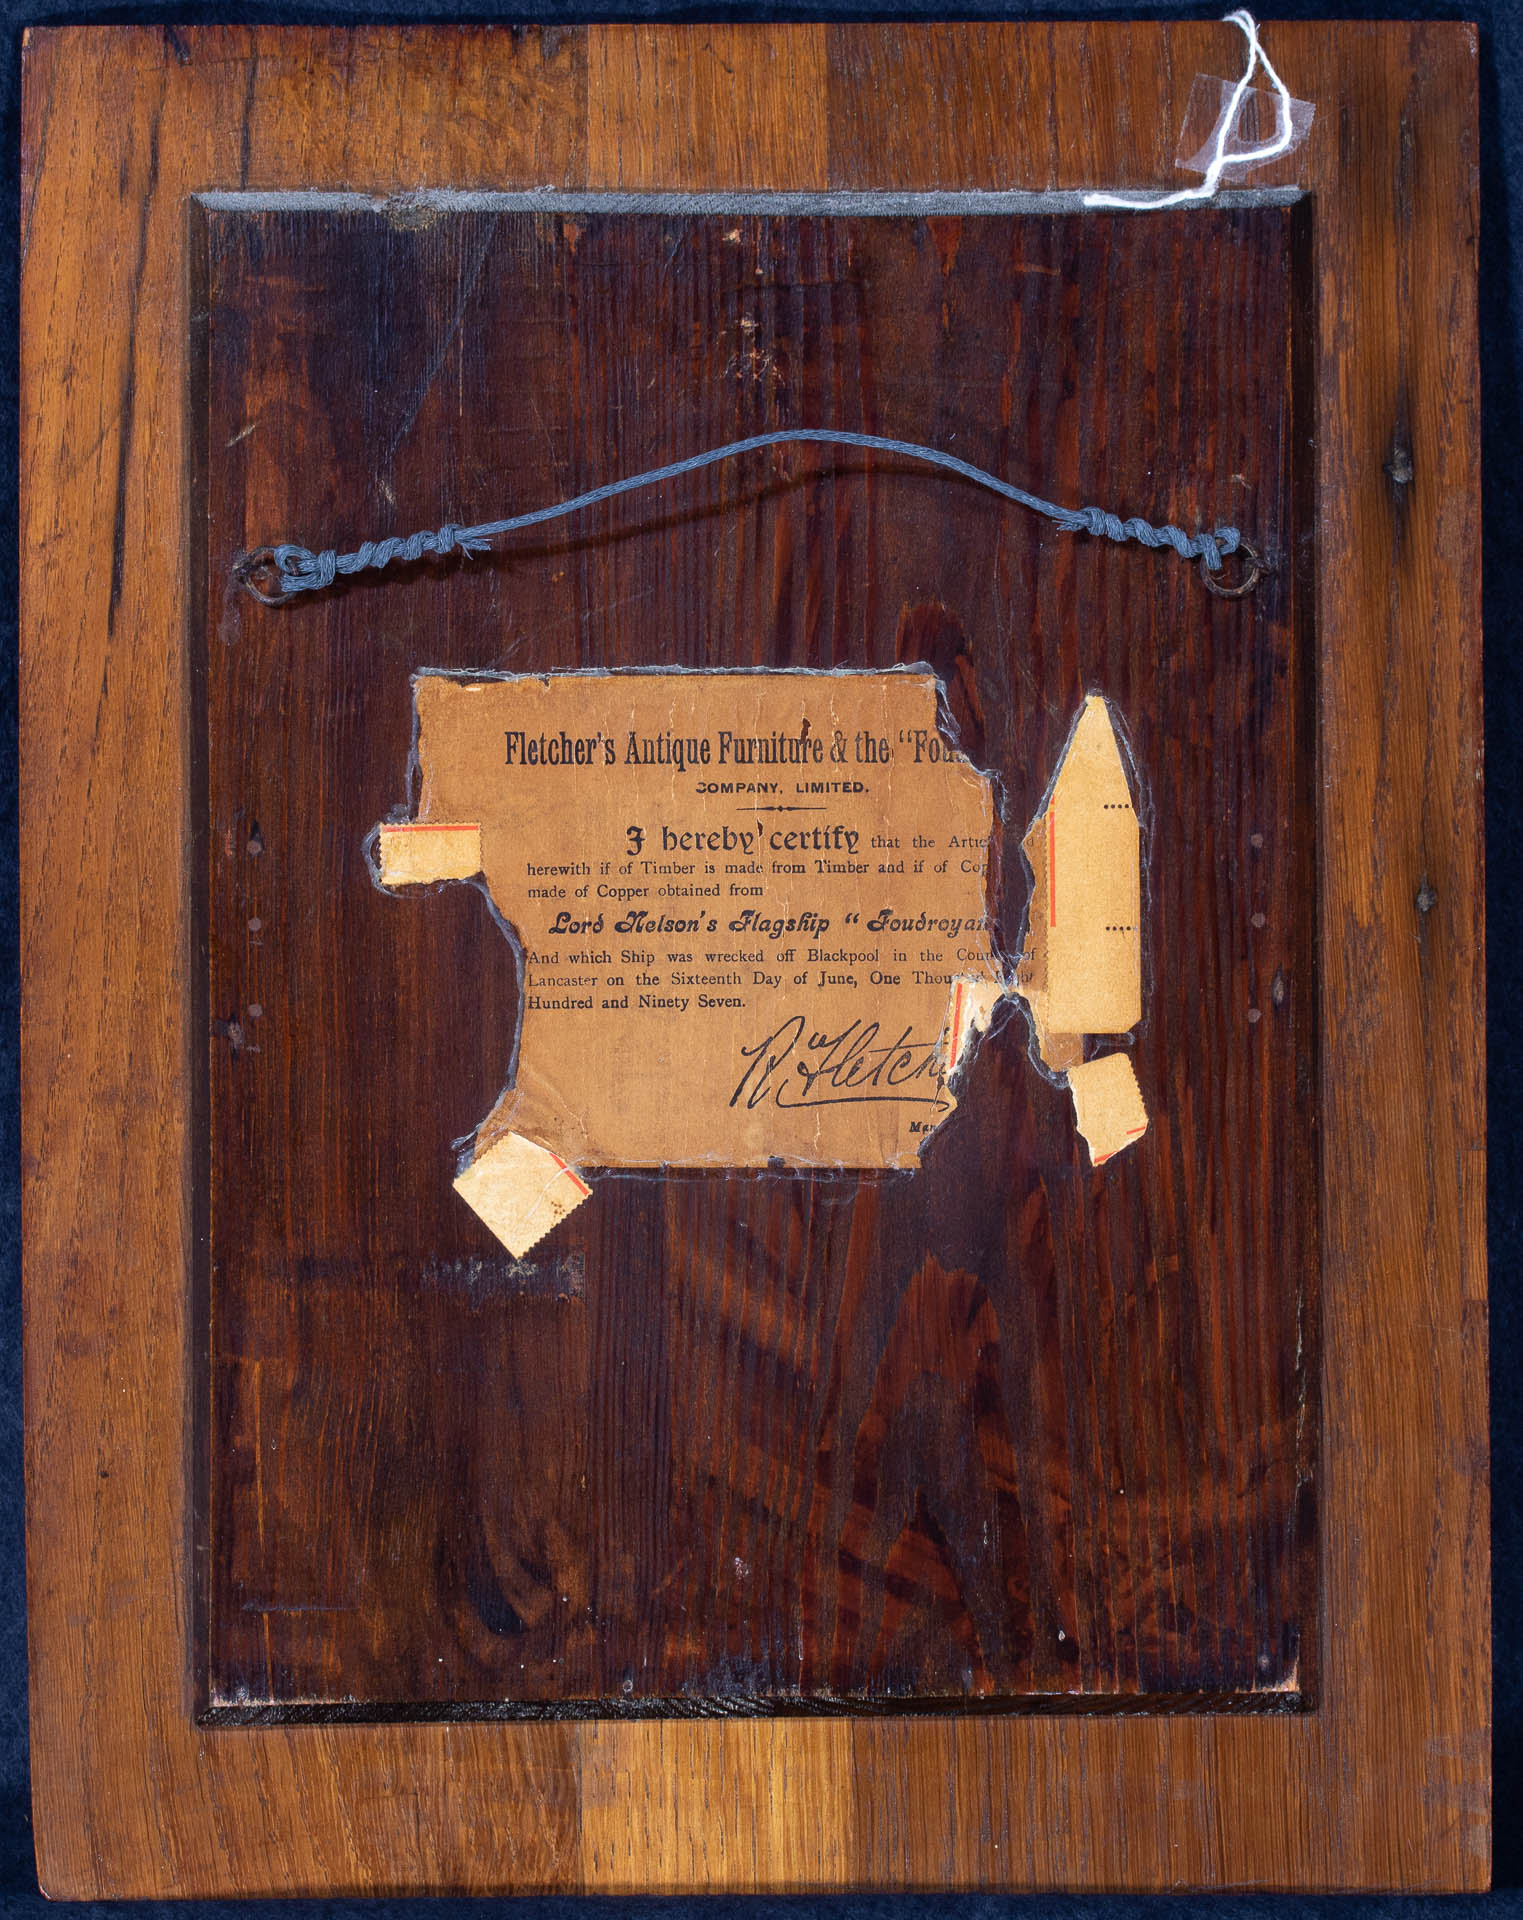 Fletcher's Antique Furniture & the "Fou
COMPANY, LIMITED.
I hereby certify that the Artic d
herewith if of Timber is made from Timber and if of Cop
made of Copper obtained from
Lord Nelson's Flagship "Foudroyan
And which Ship was wrecked off Blackpool in the Coun of
Lancaster on the Sixteenth Day of June, One Thousand Eight
Hundred and Ninety Seven.
R Fletch
Man